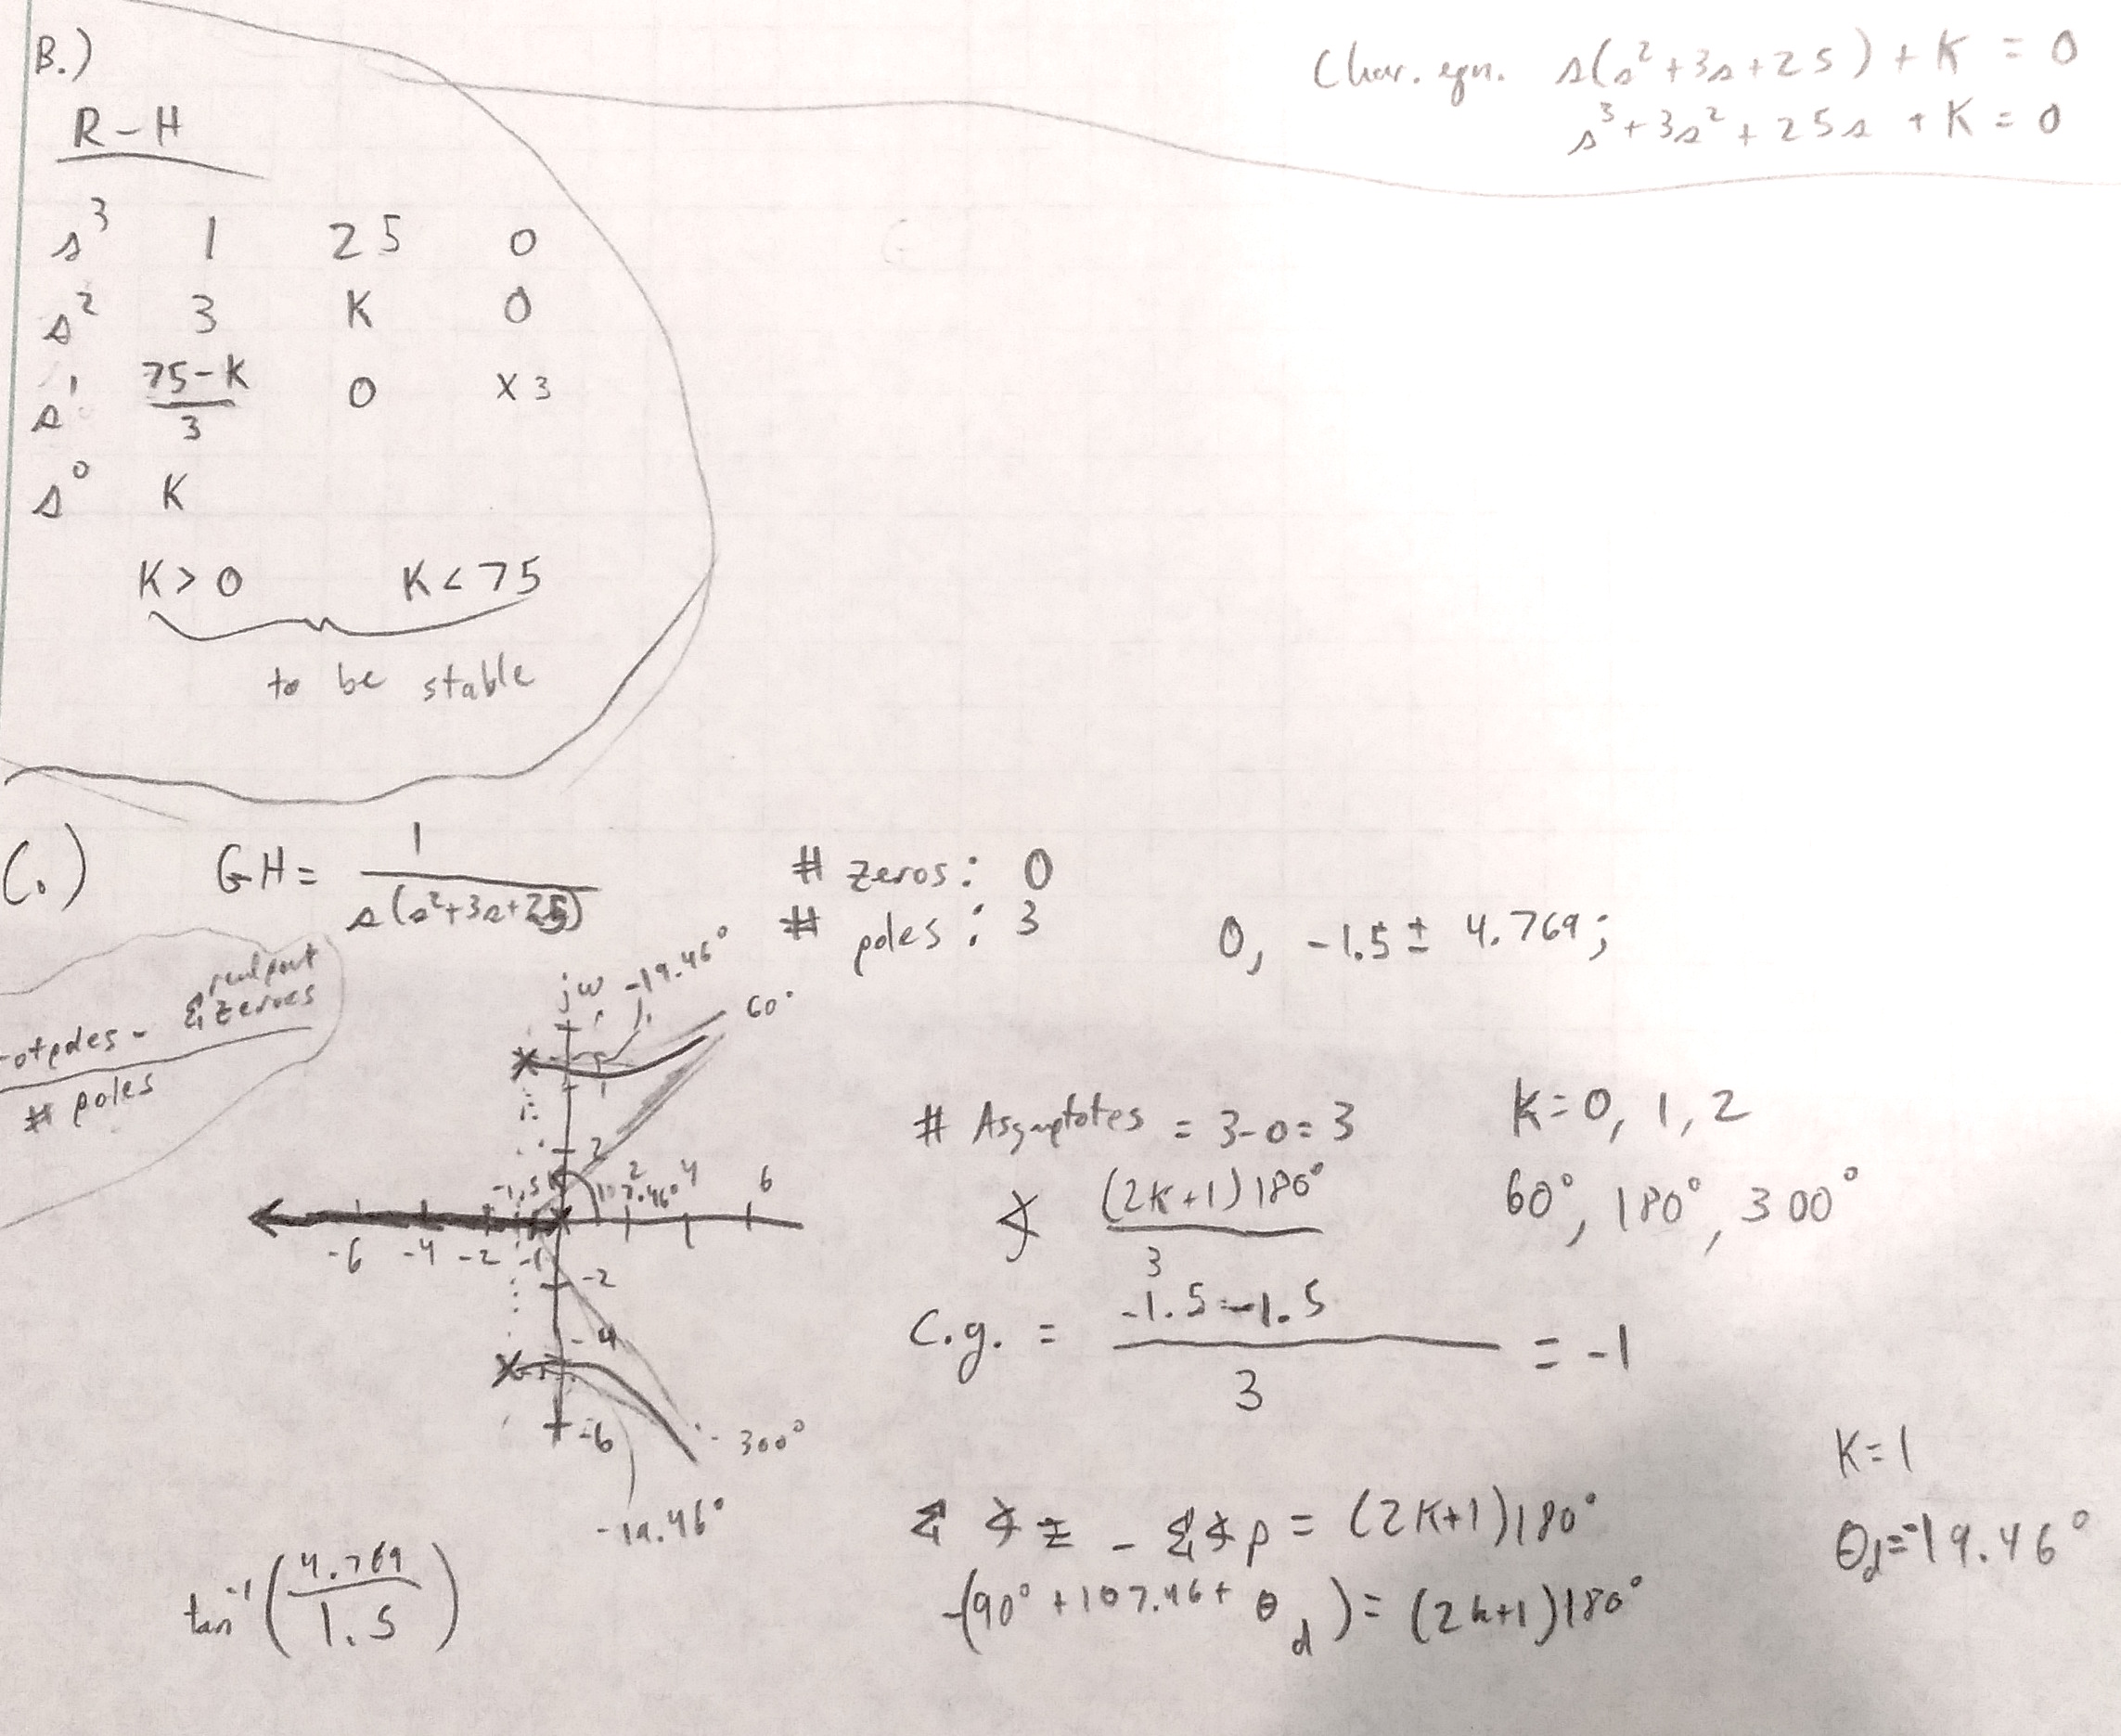 B.)
Char. eqn. s(s²+3s+25) + K = 0
s³+3s²+25s + K = 0
R-H
s³ 1 25 0
s² 3 K 0
s¹ (75-K)/3 0 x3
s⁰ K
K>0 K<75
to be stable
C.) GH = 1/(s(s²+3s+25))
# zeros: 0
# poles: 3
0, -1.5 ± 4.769j
real part
poles - Σ zeroes
# poles
jω -19.46° 60°
2
-1.5 107.46° 2 4 6
-6 -4 -2 -1
-2
-4
-6 300°
-19.46°
# Asymptotes = 3-0=3 K=0, 1, 2
∡ (2K+1)180°/3 60°, 180°, 300°
C.g. = (-1.5-1.5)/3 = -1
Σ∡z - Σ∡p = (2K+1)180°
-(90°+107.46+θd) = (2k+1)180°
K=1
θd=-19.46°
tan⁻¹(4.769/1.5)